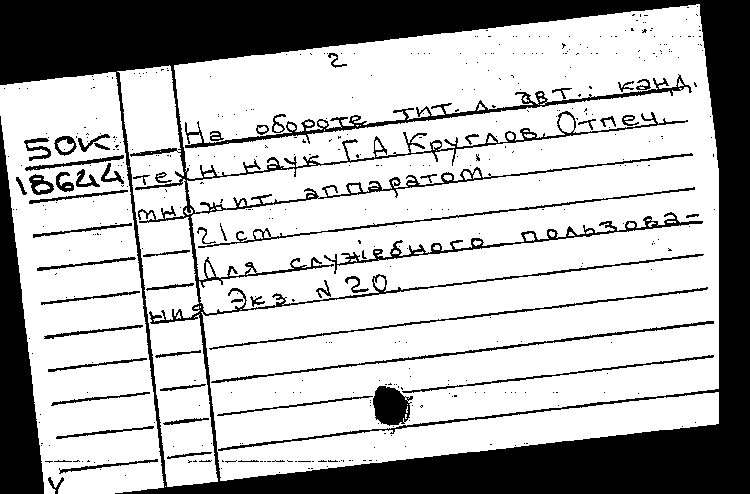 2
На обороте тит. л. авт.: канд.
50К
18644
техн. наук Г. А. Круглов. Отпеч.
множит. аппаратом.
21 cm.
Для служебного пользова-
ния. Экз. N 20.
V